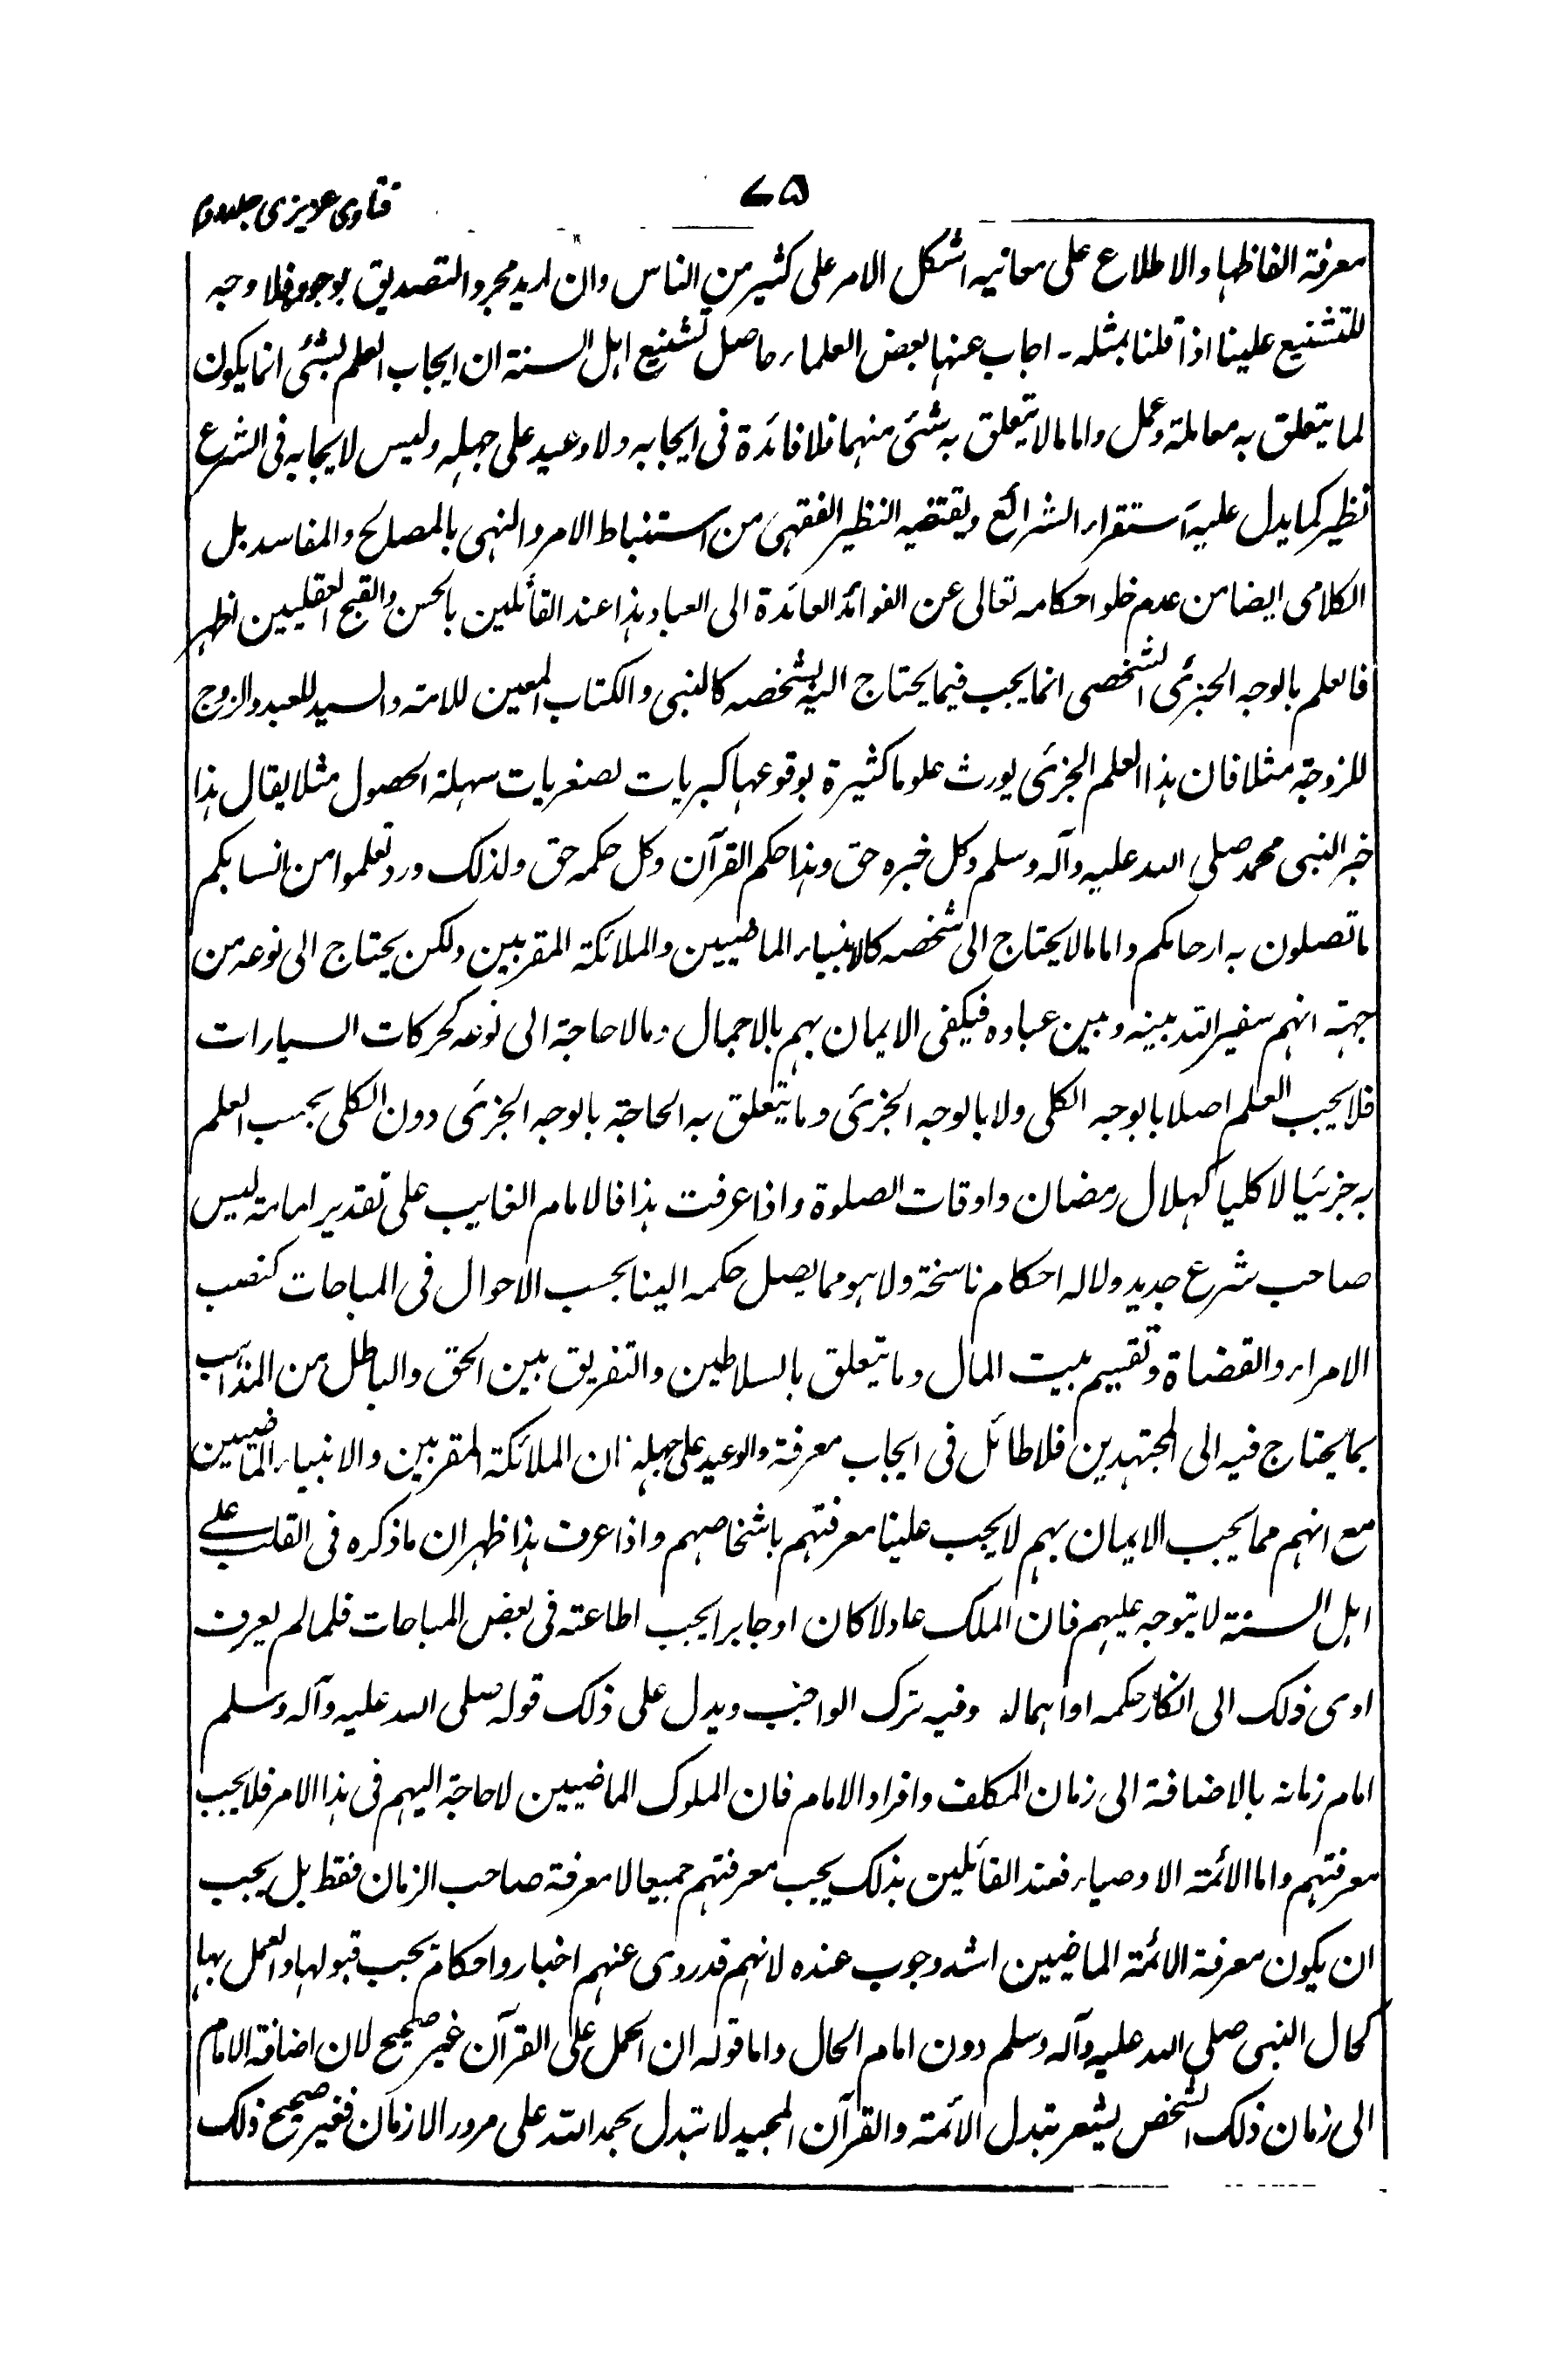 ۷۵
فتاوی عزیزی جلد دوم
معرفۃ الفاظہا والاطلاع علی معانیہ اشکل الامر علی کثیر من الناس وان ارید مجرد التصدیق بوجودہ فلا وجہ
للتشنیع علینا اذا قلنا بمثلہ۔ اجاب عنہا بعض العلماء حاصل تشنیع اہل السنۃ ان ایجاب العلم بشئی انما یکون
لما یتعلق بہ معاملۃ وعمل واما مالا یتعلق بہ شئی منہما فلا فائدۃ فی ایجابہ ولا وعید علی جہلہ ولیس لایجابہ فی الشرع
نظیر کما یدل علیہ استقراء الشرائع ویقتضیہ النظیر الفقہی من استنباط الامر والنہی بالمصالح والمفاسد بل
الکلامی ایضا من عدم خلو احکامہ تعالی عن الفوائد العائدۃ الی العباد ہذا عند القائلین بالحسن والقبح العقلیین اظہر
فالعلم بالوجہ الجزئی الشخصی انما یجب فیما یحتاج الیہ بشخصہ کالنبی والکتاب المعین للامۃ والسید للعبد والزوج
للزوجۃ مثلا فان ہذا العلم الجزئی یورث علوما کثیرۃ بوقوعہا کبریات لصغریات سہلۃ الحصول مثلا یقال ہذا
خبر النبی محمد صلی اللہ علیہ وآلہ وسلم وکل خبرہ حق وہذا حکم القرآن وکل حکمہ حق ولذلک ورد تعلموا من انسابکم
ما تصلون بہ ارحامکم واما مالا یحتاج الی شخصہ کالانبیاء الماضیین والملائکۃ المقربین ولکن یحتاج الی نوعہ من
جہتہ انہم سفیر اللہ بینہ وبین عبادہ فیکفی الایمان بہم بالاجمال ومالا حاجۃ الی نوعہ کحرکات السیارات
فلا یجب العلم اصلا بالوجہ الکلی ولا بالوجہ الجزئی وما یتعلق بہ الحاجۃ بالوجہ الجزئی دون الکلی یجب العلم
بہ جزئیا لا کلیا کہلال رمضان واوقات الصلوۃ واذا عرفت ہذا فالامام الغایب علی تقدیر امامتہ لیس
صاحب شرع جدید ولا لہ احکام ناسخۃ ولا ہو مما یصل حکمہ الینا بحسب الاحوال فی المباحات کنصب
الامراء والقضاۃ وتقسیم بیت المال وما یتعلق بالسلاطین والتفریق بین الحق والباطل من المذاہب
بما یحتاج فیہ الی المجتہدین فلا طائل فی ایجاب معرفۃ والوعید علی جہلہ ان الملائکۃ المقربین والانبیاء الماضیین
مع انہم مما یجب الایمان بہم لا یجب علینا معرفتہم باشخاصہم واذا عرف ہذا ظہر ان ما ذکرہ فی القلب علے
اہل السنۃ لا یتوجہ علیہم فان الملک عادلا کان او جابرا یجب اطاعتہ فی بعض المباحات فلما لم یعرف
اوی ذلک الی انکار حکمہ او اہمالہ وفیہ ترک الواجب ویدل علی ذلک قولہ صلی اللہ علیہ وآلہ وسلم
امام زمانہ بالاضافۃ الی زمان المکلف وافراد الامام فان الملوک الماضیین لا حاجۃ الیہم فی ہذا الامر فلا یجب
معرفتہم واما الائمۃ الاوصیاء فعند القائلین بذلک یجب معرفتہم جمیعا لا معرفۃ صاحب الزمان فقط بل یجب
ان یکون معرفۃ الائمۃ الماضیین اشد وجوب عندہ لانہم قدروی عنہم اخبار واحکام یجب قبولہا والعمل بہا
کحال النبی صلی اللہ علیہ وآلہ وسلم دون امام الحال واما قولہ ان الحمل علی القرآن غیر صحیح لان اضافۃ الامام
الی زمان ذلک الشخص یشعر بتبدل الائمۃ والقرآن المجید لا تبدل بحمد اللہ علی مرور الازمان فغیر صحیح ذلک